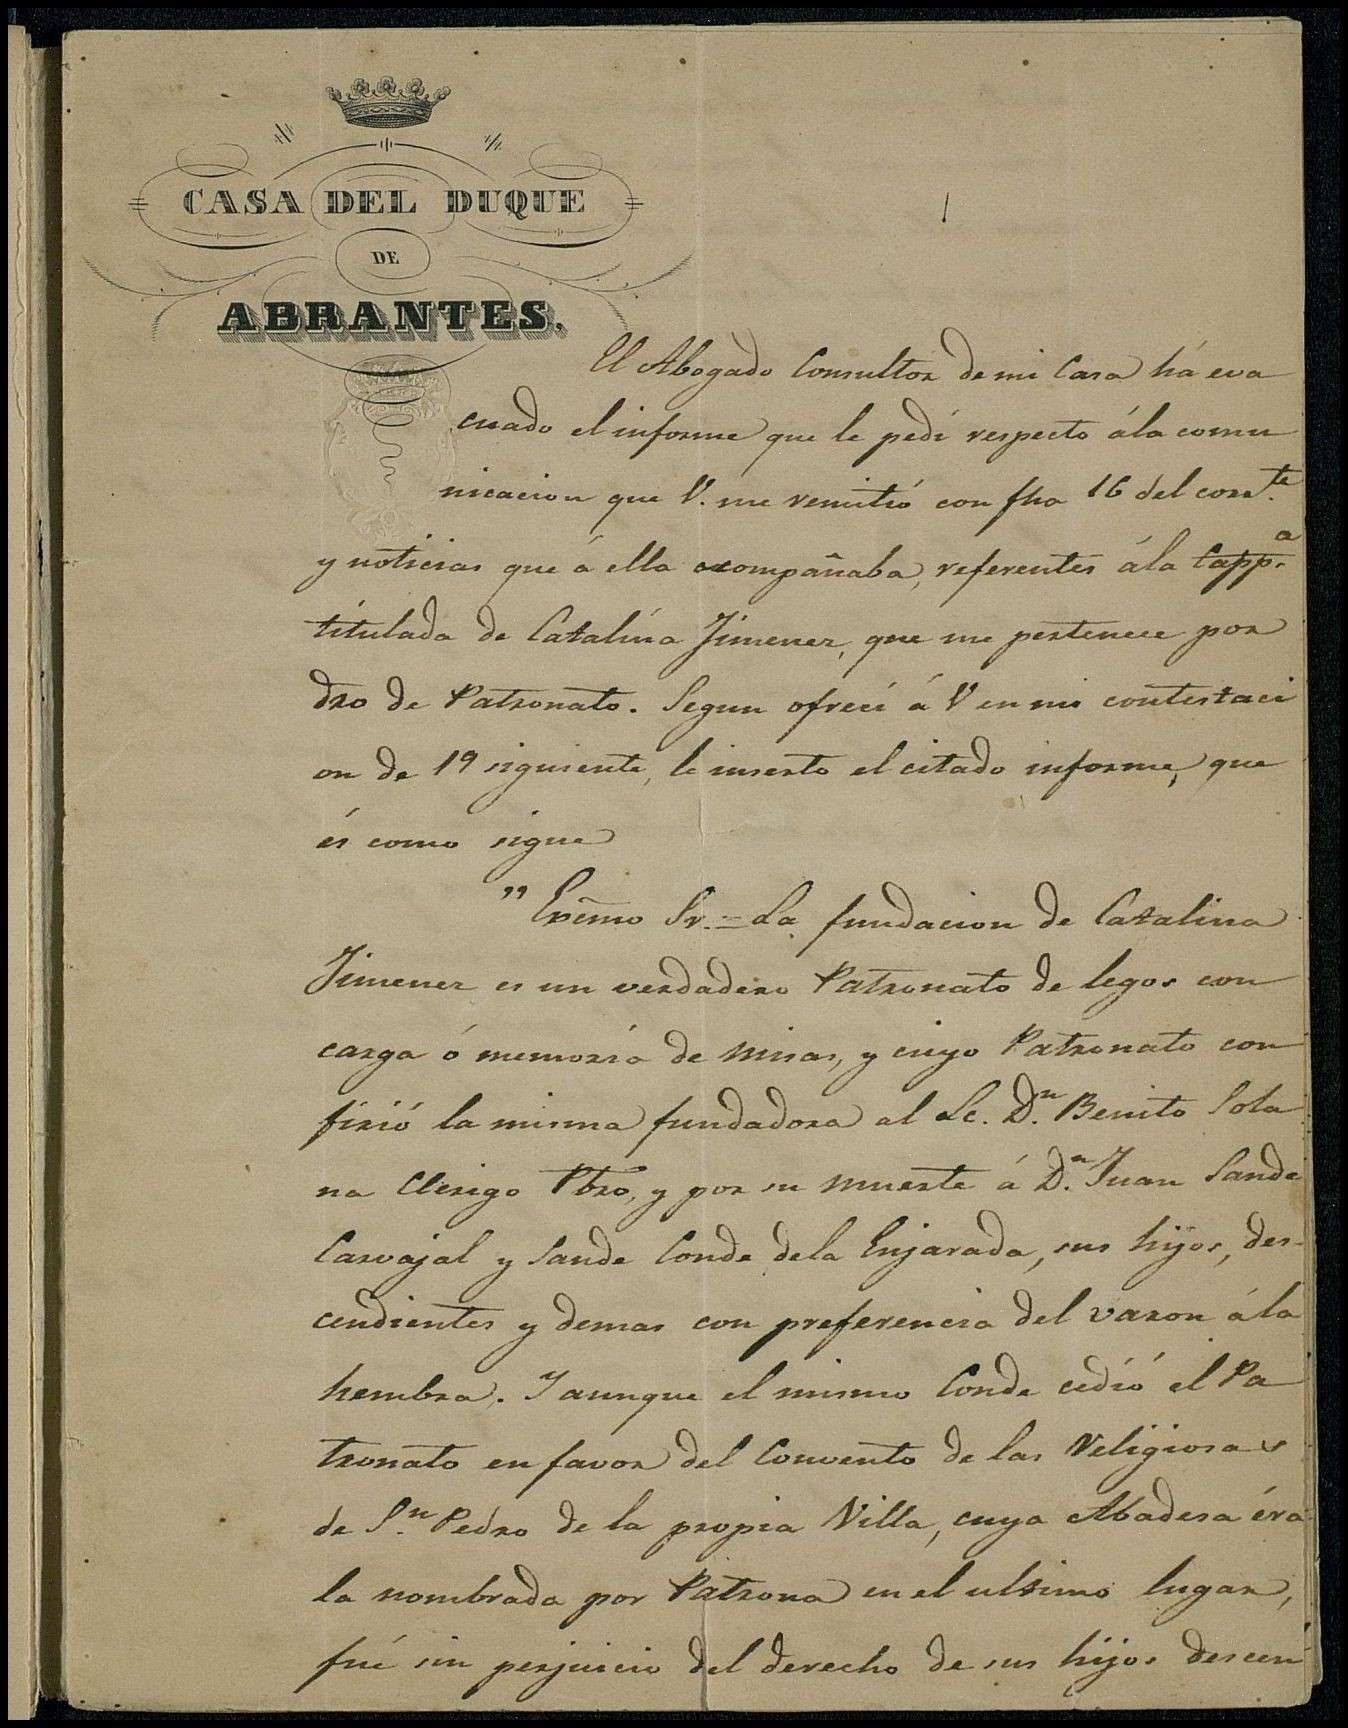 CASA DEL DUQUE
DE
ABRANTES.
1
El Abogado Consultor de mi Casa há eva
cuado el informe que le pedí respecto á la comu
nicacion que V. me remitió con fha 16 del corrte.
y noticias que á ella acompañaba, referentes á la Cappa.
titulada de Catalina Jimenez, que me pertenece por
dro de Patronato. Segun ofrecí á V en mi contestaci
on de 19 siguiente, le inserto el citado informe, que
és como sigue
"Excmo Sr. = La fundacion de Catalina
Jimenez es un verdadero Patronato de legos con
carga ó memoria de misas, y cuyo Patronato con
firió la misma fundadora al Lc. Dn. Benito Sola
na Clerigo Pbro, y por su muerte á Dn. Juan Sande
Carvajal y Sande Conde de la Enjarada, sus hijos, des-
cendientes y demas con preferencia del varon á la
hembra. Y aunque el mismo Conde cedió el Pa
tronato en favor del Convento de las Religiosas
de Sn. Pedro de la propia Villa, cuya Abadesa éra
la nombrada por Patrona en el ultimo lugar,
fué sin perjuicio del derecho de sus hijos descen